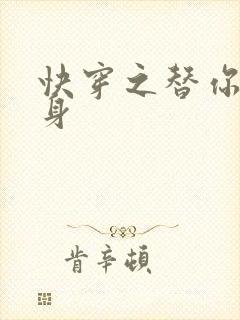 快穿之替你
身
肯辛頓